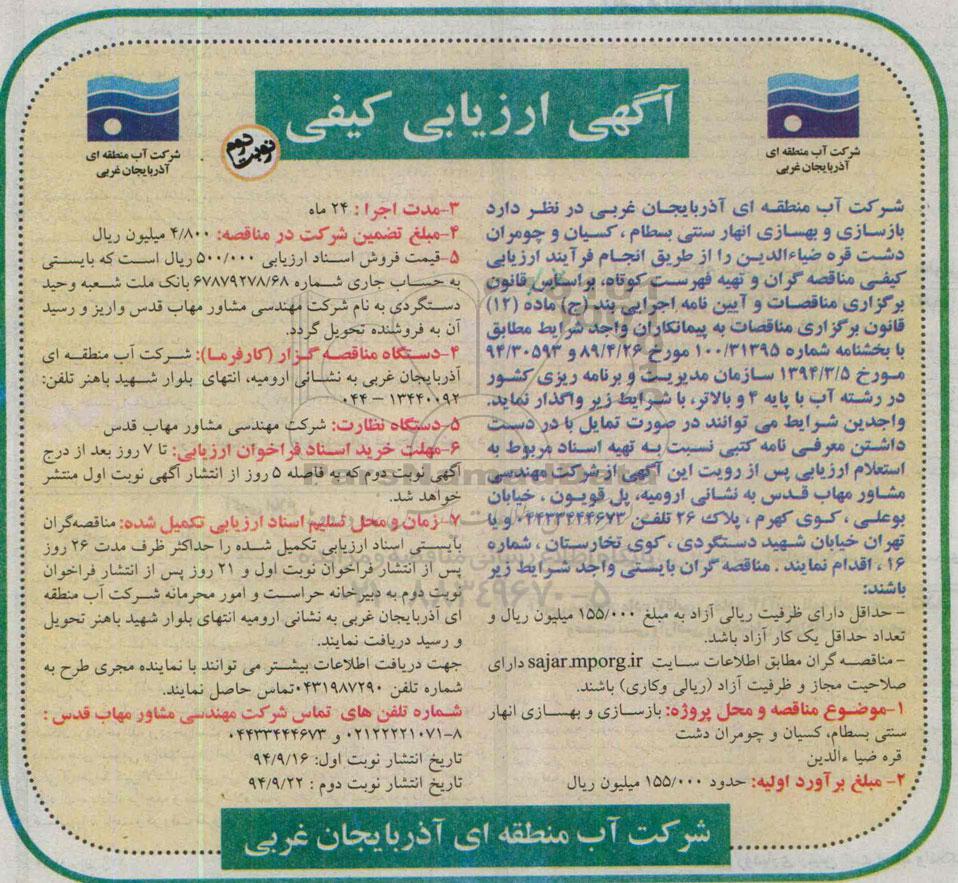 آگهی ارزیابی کیفی
نوبت دوم
شرکت آب منطقه ای
آذربایجان غربی
شرکت آب منطقه ای
آذربایجان غربی
شرکت آب منطقه ای آذربایجان غربی در نظر دارد
بازسازی و بهسازی انهار سنتی بسطام ، کسیان و چومران
دشت قره ضیاءالدین را از طریق انجام فرآیند ارزیابی
کیفی مناقصه گران و تهیه فهرست کوتاه، براساس قانون
برگزاری مناقصات و آیین نامه اجرایی بند (ج) ماده (۱۲)
قانون برگزاری مناقصات به پیمانکاران واجد شرایط مطابق
با بخشنامه شماره ۱۰۰/۳۱۳۹۵ مورخ ۸۹/۴/۲۶ و ۹۴/۳۰۵۹۳
مورخ ۱۳۹۴/۳/۵ سازمان مدیریت و برنامه ریزی کشور
در رشته آب با پایه ۴ و بالاتر، با شرایط زیر واگذار نماید.
واجدین شرایط می توانند در صورت تمایل با در دست
داشتن معرفی نامه کتبی نسبت به تهیه اسناد مربوط به
استعلام ارزیابی پس از رویت این آگهی از شرکت مهندسی
مشاور مهاب قدس به نشانی ارومیه، پل قویون ، خیابان
بوعلی ، کوی کهرم ، پلاک ۲۶ تلفن ۰۴۴۳۳۴۴۴۶۷۳ و یا
تهران خیابان شهید دستگردی ، کوی تخارستان ، شماره
۱۶ ، اقدام نمایند . مناقصه گران بایستی واجد شرایط زیر
باشند:
- حداقل دارای ظرفیت ریالی آزاد به مبلغ ۱۵۵/۰۰۰ میلیون ریال و
تعداد حداقل یک کار آزاد باشد.
- مناقصه گران مطابق اطلاعات سایت sajar.mporg.ir دارای
صلاحیت مجاز و ظرفیت آزاد (ریالی وکاری) باشند.
۱-موضوع مناقصه و محل پروژه: بازسازی و بهسازی انهار
سنتی بسطام، کسیان و چومران دشت
قره ضیا ءالدین
۲- مبلغ برآورد اولیه: حدود ۱۵۵/۰۰۰ میلیون ریال
۳-مدت اجرا : ۲۴ ماه
۴-مبلغ تضمین شرکت در مناقصه: ۴/۸۰۰ میلیون ریال
۵-قیمت فروش اسناد ارزیابی ۵۰۰/۰۰۰ ریال است که بایستی
به حساب جاری شماره ۶۷۸۷۹۲۷۸/۶۸ بانک ملت شعبه وحید
دستگردی به نام شرکت مهندسی مشاور مهاب قدس واریز و رسید
آن به فروشنده تحویل گردد.
۴-دستگاه مناقصه گزار (کارفرما): شرکت آب منطقه ای
آذربایجان غربی به نشانی ارومیه، انتهای بلوار شهید باهنر تلفن:
۱۳۴۴۰۰۹۲ - ۰۴۴
۵-دستگاه نظارت: شرکت مهندسی مشاور مهاب قدس
۶-مهلت خرید اسناد فراخوان ارزیابی: تا ۷ روز بعد از درج
آگهی نوبت دوم که به فاصله ۵ روز از انتشار آگهی نوبت اول منتشر
خواهد شد.
۷- زمان و محل تسلیم اسناد ارزیابی تکمیل شده: مناقصه‌گران
بایستی اسناد ارزیابی تکمیل شده را حداکثر ظرف مدت ۲۶ روز
پس از انتشار فراخوان نوبت اول و ۲۱ روز پس از انتشار فراخوان
نوبت دوم به دبیرخانه حراست و امور محرمانه شرکت آب منطقه
ای آذربایجان غربی به نشانی ارومیه انتهای بلوار شهید باهنر تحویل
و رسید دریافت نمایند.
جهت دریافت اطلاعات بیشتر می توانند با نماینده مجری طرح به
شماره تلفن ۰۴۳۱۹۸۷۲۹۰ تماس حاصل نمایند.
شماره تلفن های تماس شرکت مهندسی مشاور مهاب قدس :
۸-۰۲۱۲۲۲۲۱۰۷۱ و ۰۴۴۳۳۴۴۴۶۷۳
تاریخ انتشار نوبت اول: ۹۴/۹/۱۶
تاریخ انتشار نوبت دوم : ۹۴/۹/۲۲
شرکت آب منطقه ای آذربایجان غربی